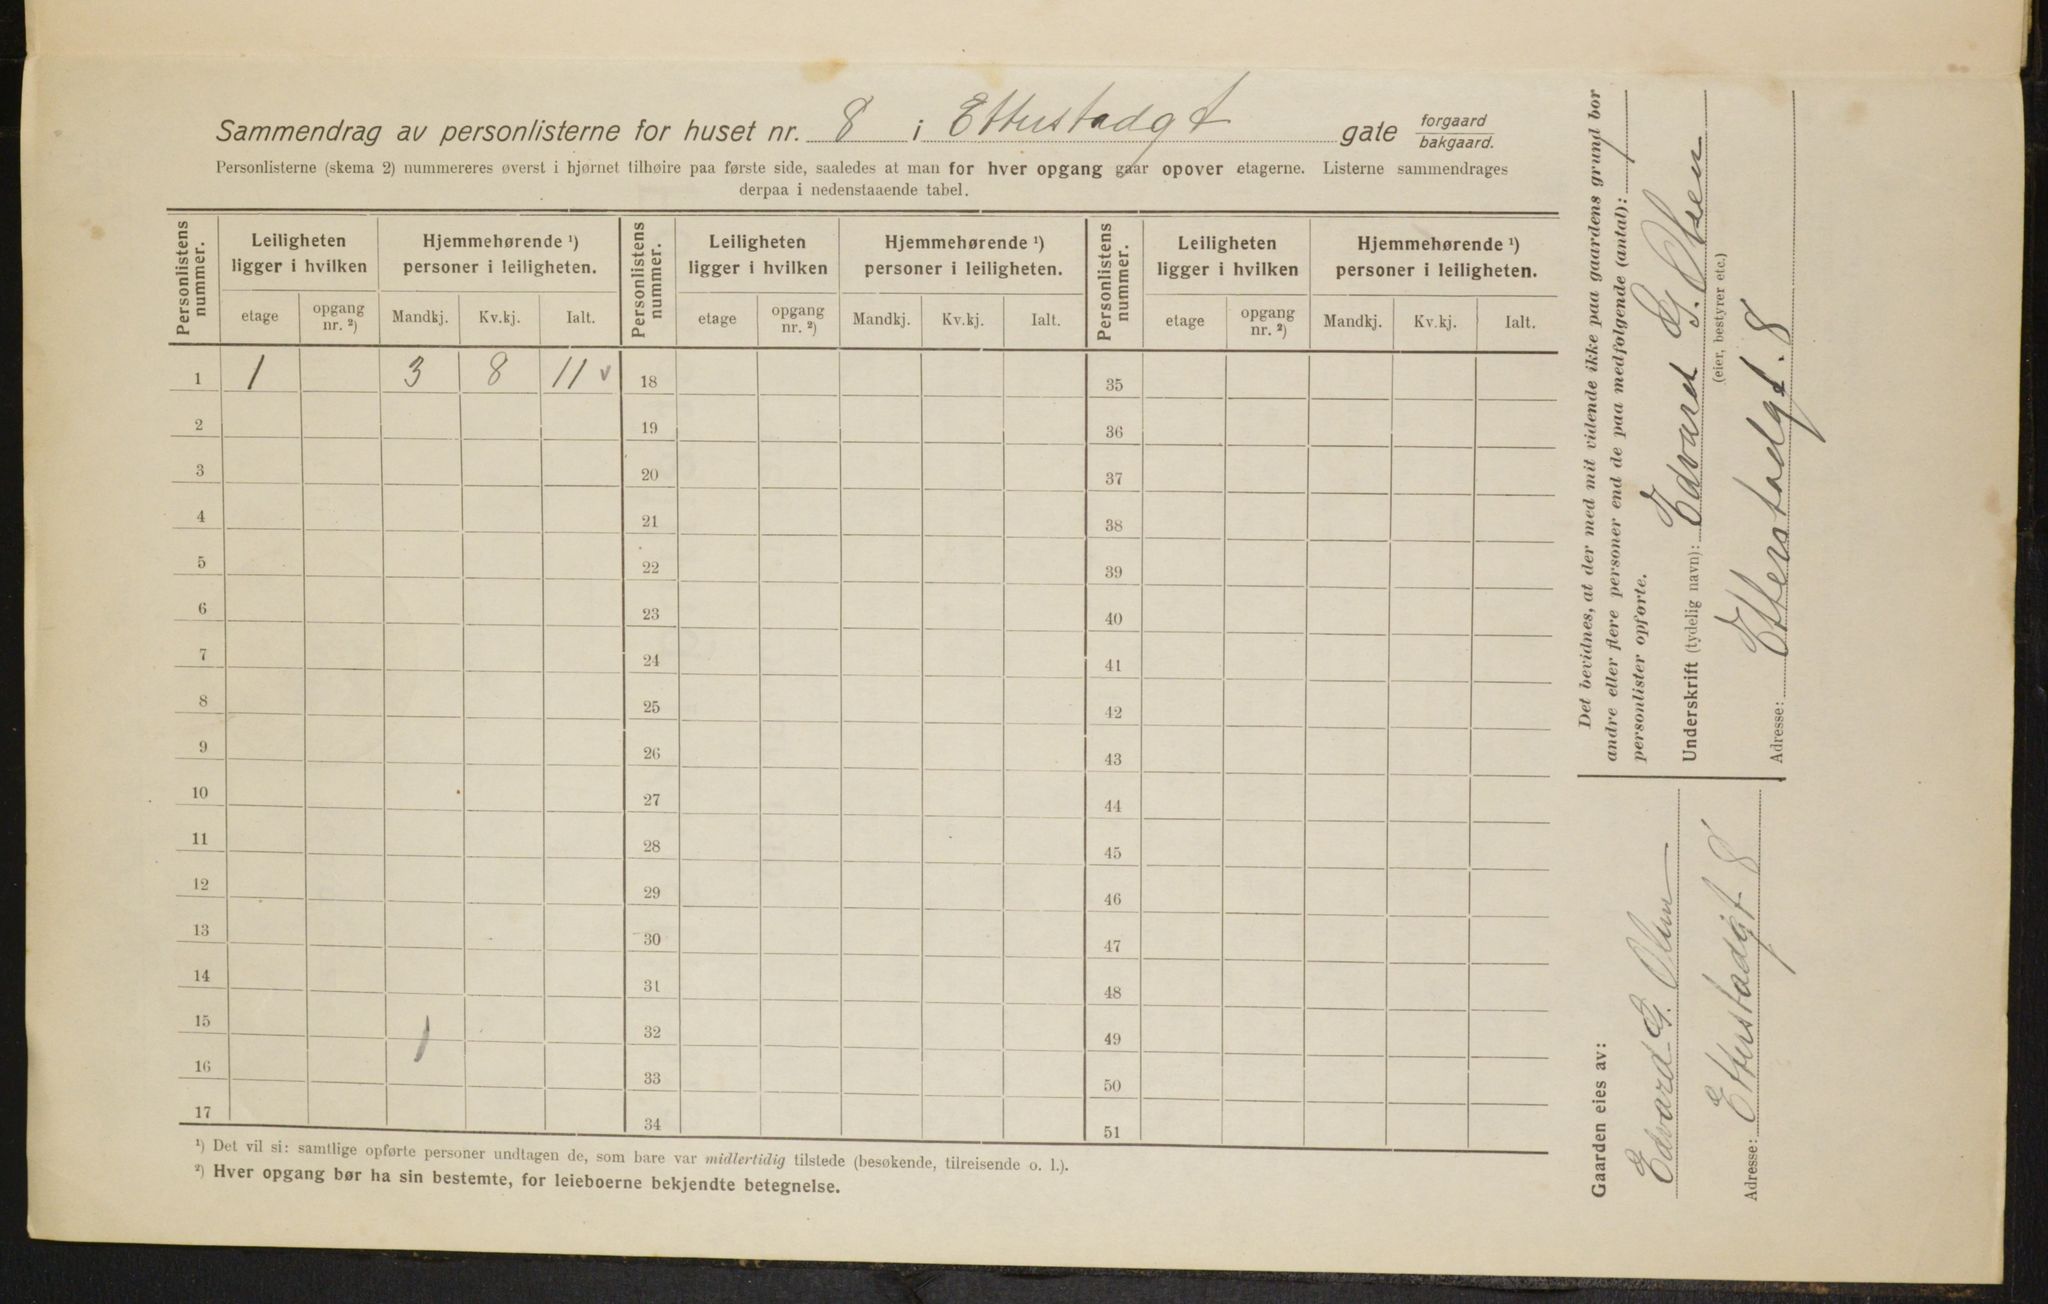 Sammendrag av personlisterne for huset nr. 8 i Etterstadgt gate forgaard bakgaard.
Personlisterne (skema 2) nummereres øverst i hjørnet tilhøire paa første side, saaledes at man for hver opgang gaar opover etagerne. Listerne sammendrages
derpaa i nedenstaaende tabel.
Personlistens nummer. Leiligheten ligger i hvilken Hjemmehørende ¹) personer i leiligheten. Personlistens nummer. Leiligheten ligger i hvilken Hjemmehørende ¹) personer i leiligheten. Personlistens nummer. Leiligheten ligger i hvilken Hjemmehørende ¹) personer i leiligheten.
etage opgang nr. ²) Mandkj. Kv.kj. Ialt. etage opgang nr. ²) Mandkj. Kv.kj. Ialt. etage opgang nr. ²) Mandkj. Kv.kj. Ialt.
1 1 3 8 11 v 18 35
2 19 36
3 20 37
4 21 38
5 22 39
6 23 40
7 24 41
8 25 42
9 26 43
10 27 44
11 28 45
12 29 46
13 30 47
14 31 48
15 1 32 49
16 33 50
17 34 51
¹) Det vil si: samtlige opførte personer undtagen de, som bare var midlertidig tilstede (besøkende, tilreisende o. l.).
²) Hver opgang bør ha sin bestemte, for leieboerne bekjendte betegnelse.
Gaarden eies av:
Edvard G. Olsen
Adresse: Etterstadgt 8
Det bevidnes, at der med mit vidende ikke paa gaardens grund bor
andre eller flere personer end de paa medfølgende (antal): 1
personlister opførte.
Underskrift (tydelig navn): Edvard G. Olsen
(eier, bestyrer etc.)
Adresse: Etterstadgt. 8